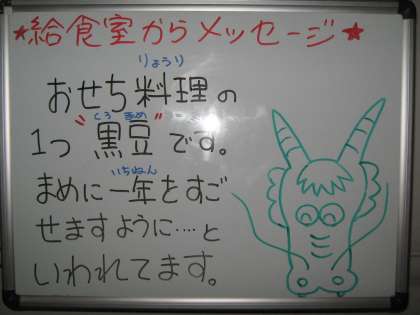 ★給食室からメッセージ★
りょうり
おせち料理の
くろ まめ
1つ"黒豆"です。
いちねん
まめに一年をすご
せますように‥‥と
いわれてます。